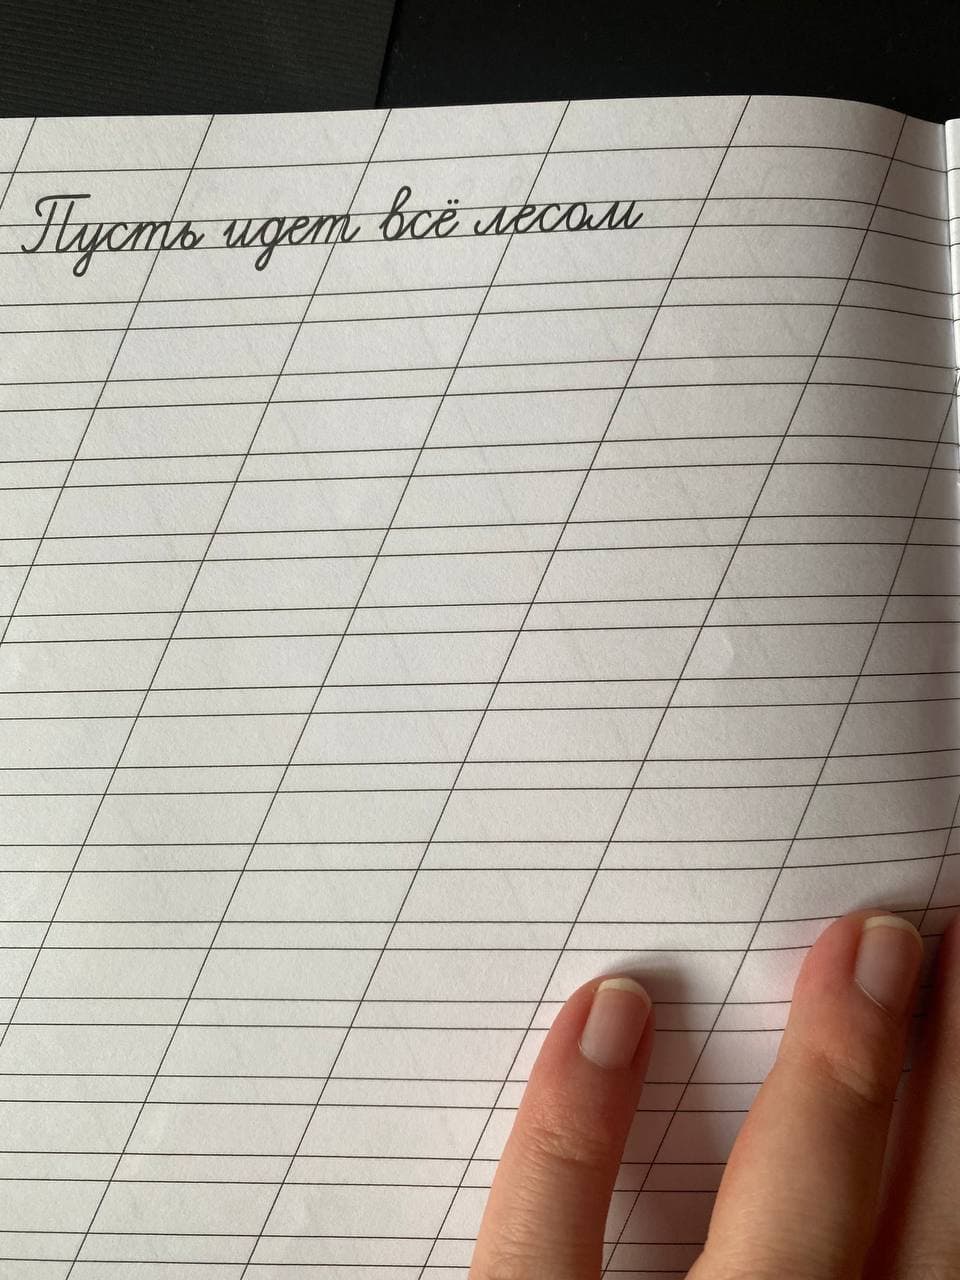 Пусть идет всё лесом